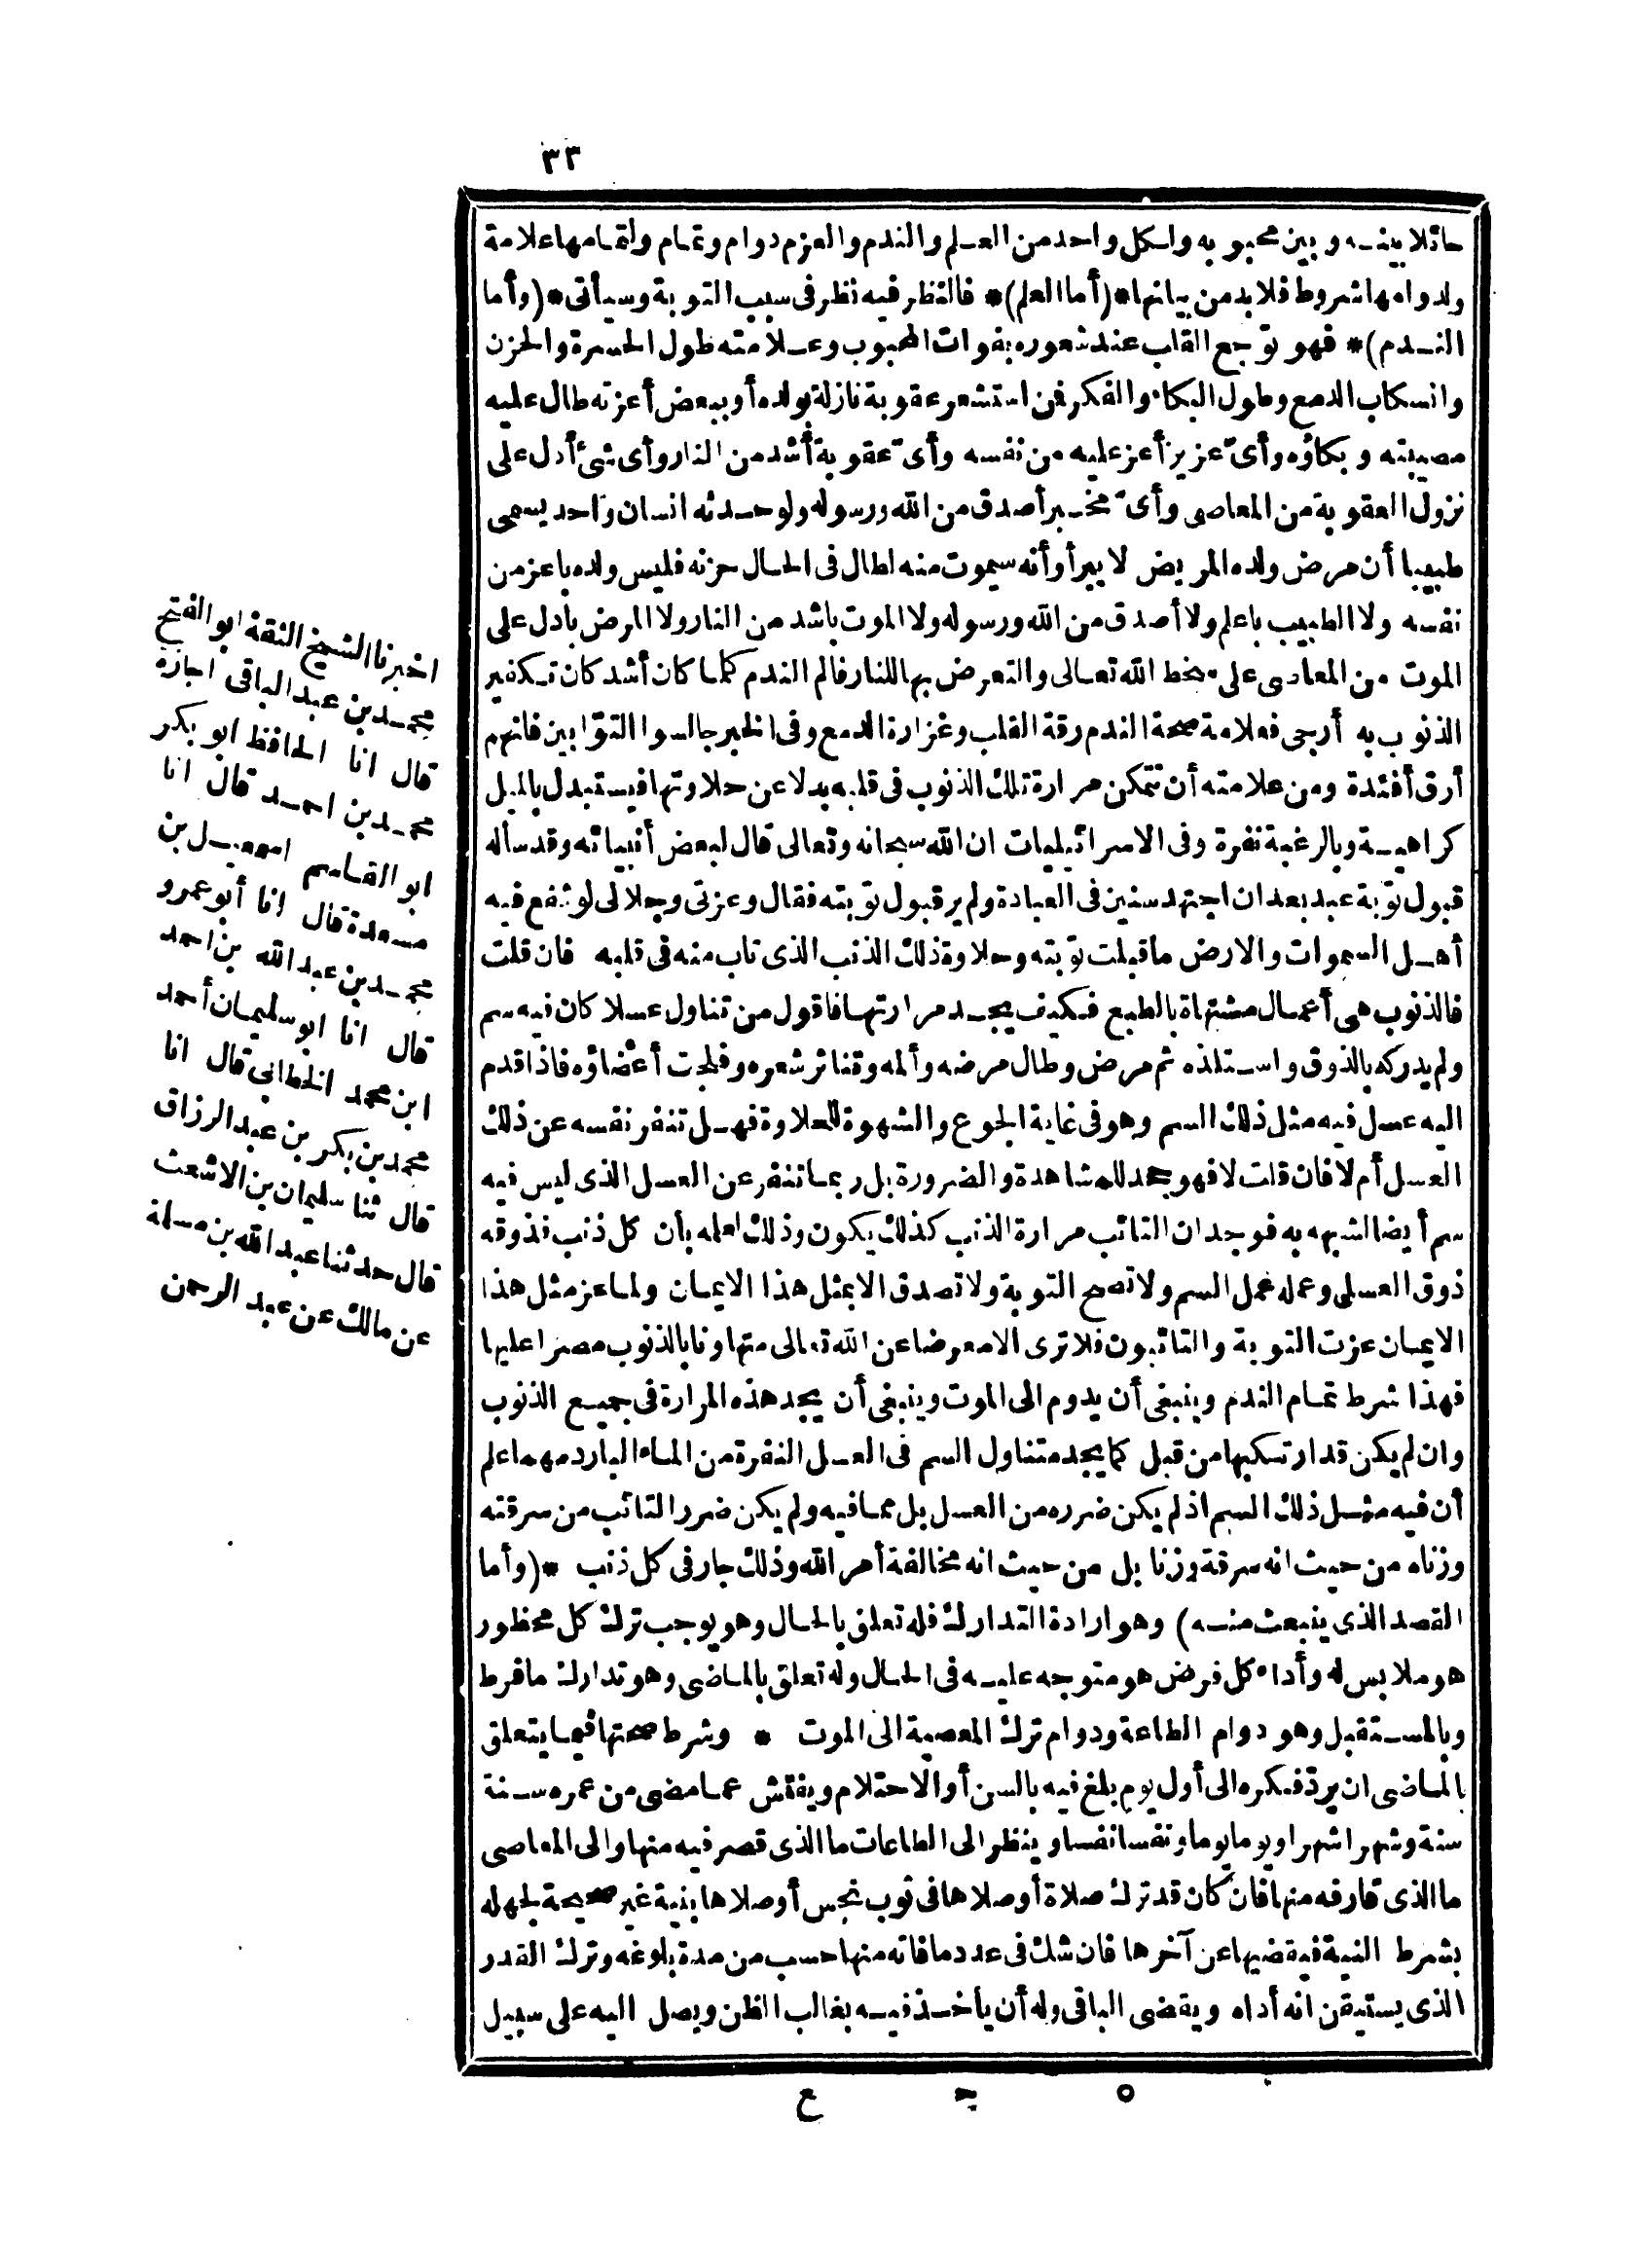 ٣٣
حائلا بينه وبين محبوبه ولكل واحد من العلم والندم والعزم دوام وتمام ولتمامها علامة
ولدوامها شروط فلا بد من بيانها *(أما العلم)* فالنظر فيه نظر في سبب التوبة وسيأتى *(وأما
الندم)* فهو توجع القلب عند شعوره بفوات المحبوب وعلامته طول الحسرة والحزن
وانسكاب الدمع وطول البكاء والفكر فمن استشعر عقوبة نازلة بولده أو ببعض أعزته طال عليه
مصيبته وبكاؤه وأىّ عزيز أعز عليه من نفسه وأىّ عقوبة أشد من النار وأى شئ أدل على
نزول العقوبة من المعاصى وأىّ مخبر أصدق من الله ورسوله ولو حدثه انسان واحد يسمى
طبيبا أن مرض ولده المريض لا يبرأ وأنه سيموت منه لطال فى الحال حزنه فليس ولده باعز من
نفسه ولا الطبيب باعلم ولا أصدق من الله ورسوله ولا الموت باشد من النار ولا المرض بادل على
الموت من المعاصى على سخط الله تعالى والتعرض بها للنار فالم الندم كلما كان أشد كان تكفير
الذنوب به أرجى فعلامة صحة الندم رقة القلب وغزارة الدمع وفى الخبر جالسوا التوّابين فانهم
أرق أفئدة ومن علامته أن تتمكن مرارة تلك الذنوب فى قلبه بدلا عن حلاوتها فيستبدل بالميل
كراهية وبالرغبة نفرة وفى الاسرائيليات ان الله سبحانه وتعالى قال لبعض أنبيائه وقد سأله
قبول توبة عبد بعد ان اجتهد سنين فى العبادة ولم ير قبول توبته فقال وعزتى وجلالى لو شفع فيه
أهل السموات والارض ما قبلت توبته وحلاوة ذلك الذنب الذى تاب منه فى قلبه فان قلت
فالذنوب هى أعمال مشتهاة بالطبع فكيف يجد مرارتها فاقول من تناول عسلا كان فيه سم
ولم يدركه بالذوق واستلذه ثم مرض وطال مرضه وألمه وتناثر شعره وفلجت أعضاؤه فاذا قدم
اليه عسل فيه مثل ذلك السم وهو فى غاية الجوع والشهوة للحلاوة فهل تنفر نفسه عن ذلك
العسل أم لا فان قلت لا فهو جحد للمشاهدة والضرورة بل ربما تنفر عن العسل الذى ليس فيه
سم أيضا لشبهه به فوجدان التائب مرارة الذنب كذلك يكون وذلك لعلمه بأن كل ذنب فذوقه
ذوق العسل وعمله عمل السم ولا تصح التوبة ولا تصدق الا بمثل هذا الايمان ولما عز مثل هذا
الايمان عزت التوبة والتائبون فلا ترى الا معرضا عن الله تعالى متهاونا بالذنوب مصرا عليها
فهذا شرط تمام الندم وينبغى أن يدوم الى الموت وينبغى أن يجد هذه المرارة فى جميع الذنوب
وان لم يكن قد ارتكبها من قبل كما يجد متناول السم فى العسل النفرة من الماء البارد مهما علم
أن فيه مثل ذلك السم اذ لم يكن ضرره من العسل بل مما فيه ولم يكن ضرر التائب من سرقته
وزناه من حيث انه سرقة وزنا بل من حيث انه مخالفة أمر الله وذلك جار فى كل ذنب *(وأما
القصد الذى ينبعث منه) وهو ارادة التدارك فله تعلق بالحال وهو يوجب ترك كل محظور
هو ملابس له وأداء كل فرض هو متوجه عليه فى الحال وله تعلق بالماضى وهو تدارك ما فرط
وبالمستقبل وهو دوام الطاعة ودوام ترك المعصية الى الموت * وشرط صحتها فيما يتعلق
بالماضى ان يردّ فكره الى أول يوم بلغ فيه بالسن أو الاحتلام ويفتش عما مضى من عمره سنة
سنة وشهرا شهرا ويوما يوما ونفسا نفسا وينظر الى الطاعات ما الذى قصر فيه منها والى المعاصى
ما الذى قارفه منها فان كان قد ترك صلاة أو صلاها فى ثوب نجس أو صلاها بنية غير صحيحة لجهله
بشرط النية فيقضيها عن آخرها فان شك فى عدد ما فاته منها حسب من مدة بلوغه وترك القدر
الذى يستيقن انه أداه ويقضى الباقى وله أن يأخذ فيه بغالب الظن ويصل اليه على سبيل
٥ ج ع
اخبرنا الشيخ الثقة ابو الفتح
محمد بن عبد الباقى اجازة
قال انا الحافظ ابو بكر
محمد بن احمد قال انا
ابو القاسم اسمعيل بن
مسعدة قال انا أبو عمرو
محمد بن عبد الله بن احمد
قال انا ابو سليمان أحمد
ابن محمد الخطابى قال انا
محمد بن بكر بن عبد الرزاق
قال ثنا سليمان بن الاشعث
قال حدثنا عبد الله بن مسلمة
عن مالك عن عبد الرحمن